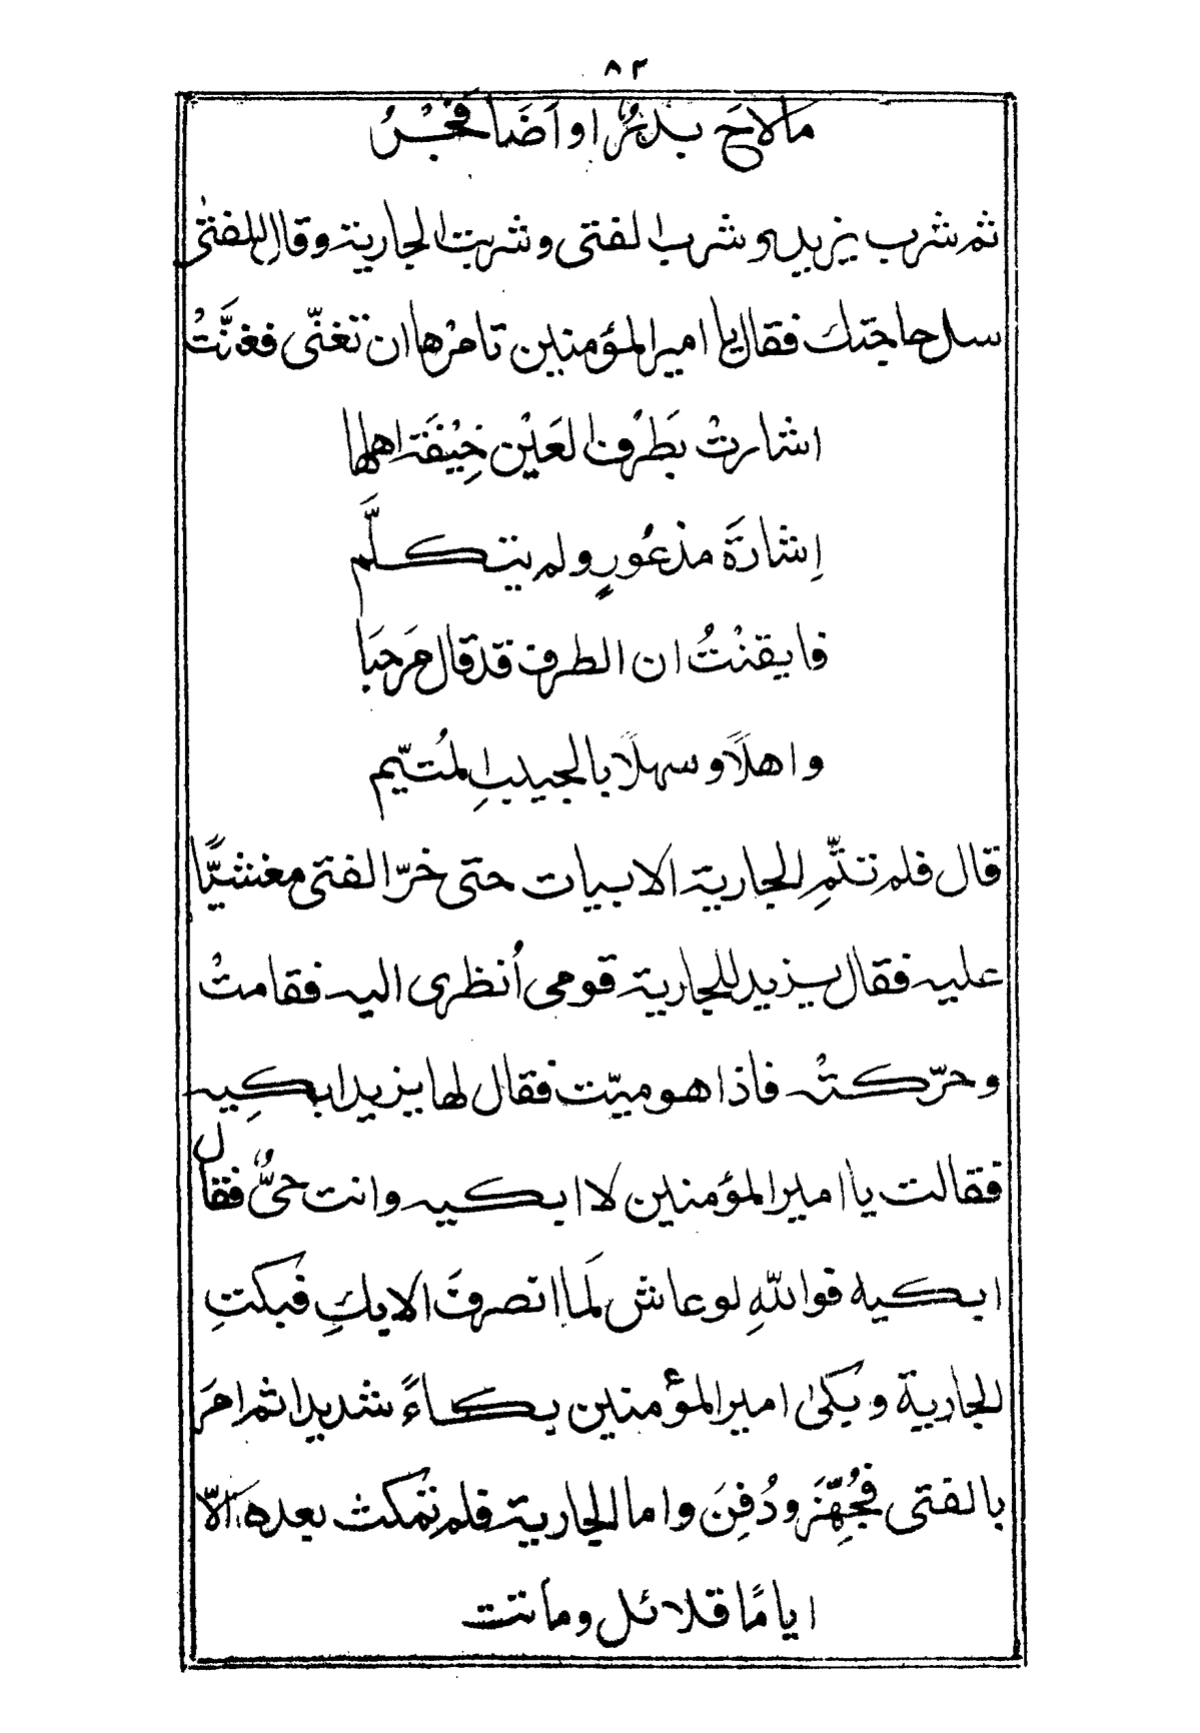 ٨٣
مالاحَ بدرٌ او اَضَا فَجْرُ
ثم شرب يزيد وشرب الفتى وشربت الجارية وقال للفتىٰ
سل حاجتك فقال يا امير المؤمنين تامرْها ان تغنّى فغنَّتْ
اشارتْ بَطرْف العَيْن خِيْفَة اهلها
اِشارَة مذعُورٍ ولم يتكلَّم
فايقنْتُ ان الطرف قد قال مَرحَبَا
واهلًا وسهلًا بالحبيبِ المُتيّم
قال فلم تتمِّ الجارية الابيات حتى خرّ الفتى مغشيًّا
عليه فقال يزيد للجارية قومى اُنظرى اليه فقامتْ
وحرّكتْه فاذا هو ميّت فقال لها يزيد ابكِيه
فقالت يا امير المؤمنين لا ابكيه وانت حىٌّ فقال
ابكيه فواللّهِ لو عاش لَما انصرفَ الا بكِ فبكتِ
الجارية وبكىٰ امير المؤمنين بكاءً شديدا ثم امَر
بالفتى فجُهِّزَ ودُفِنَ واما الجارية فلم تمكث بعده اَلّا
ايامًا قلائل وماتت